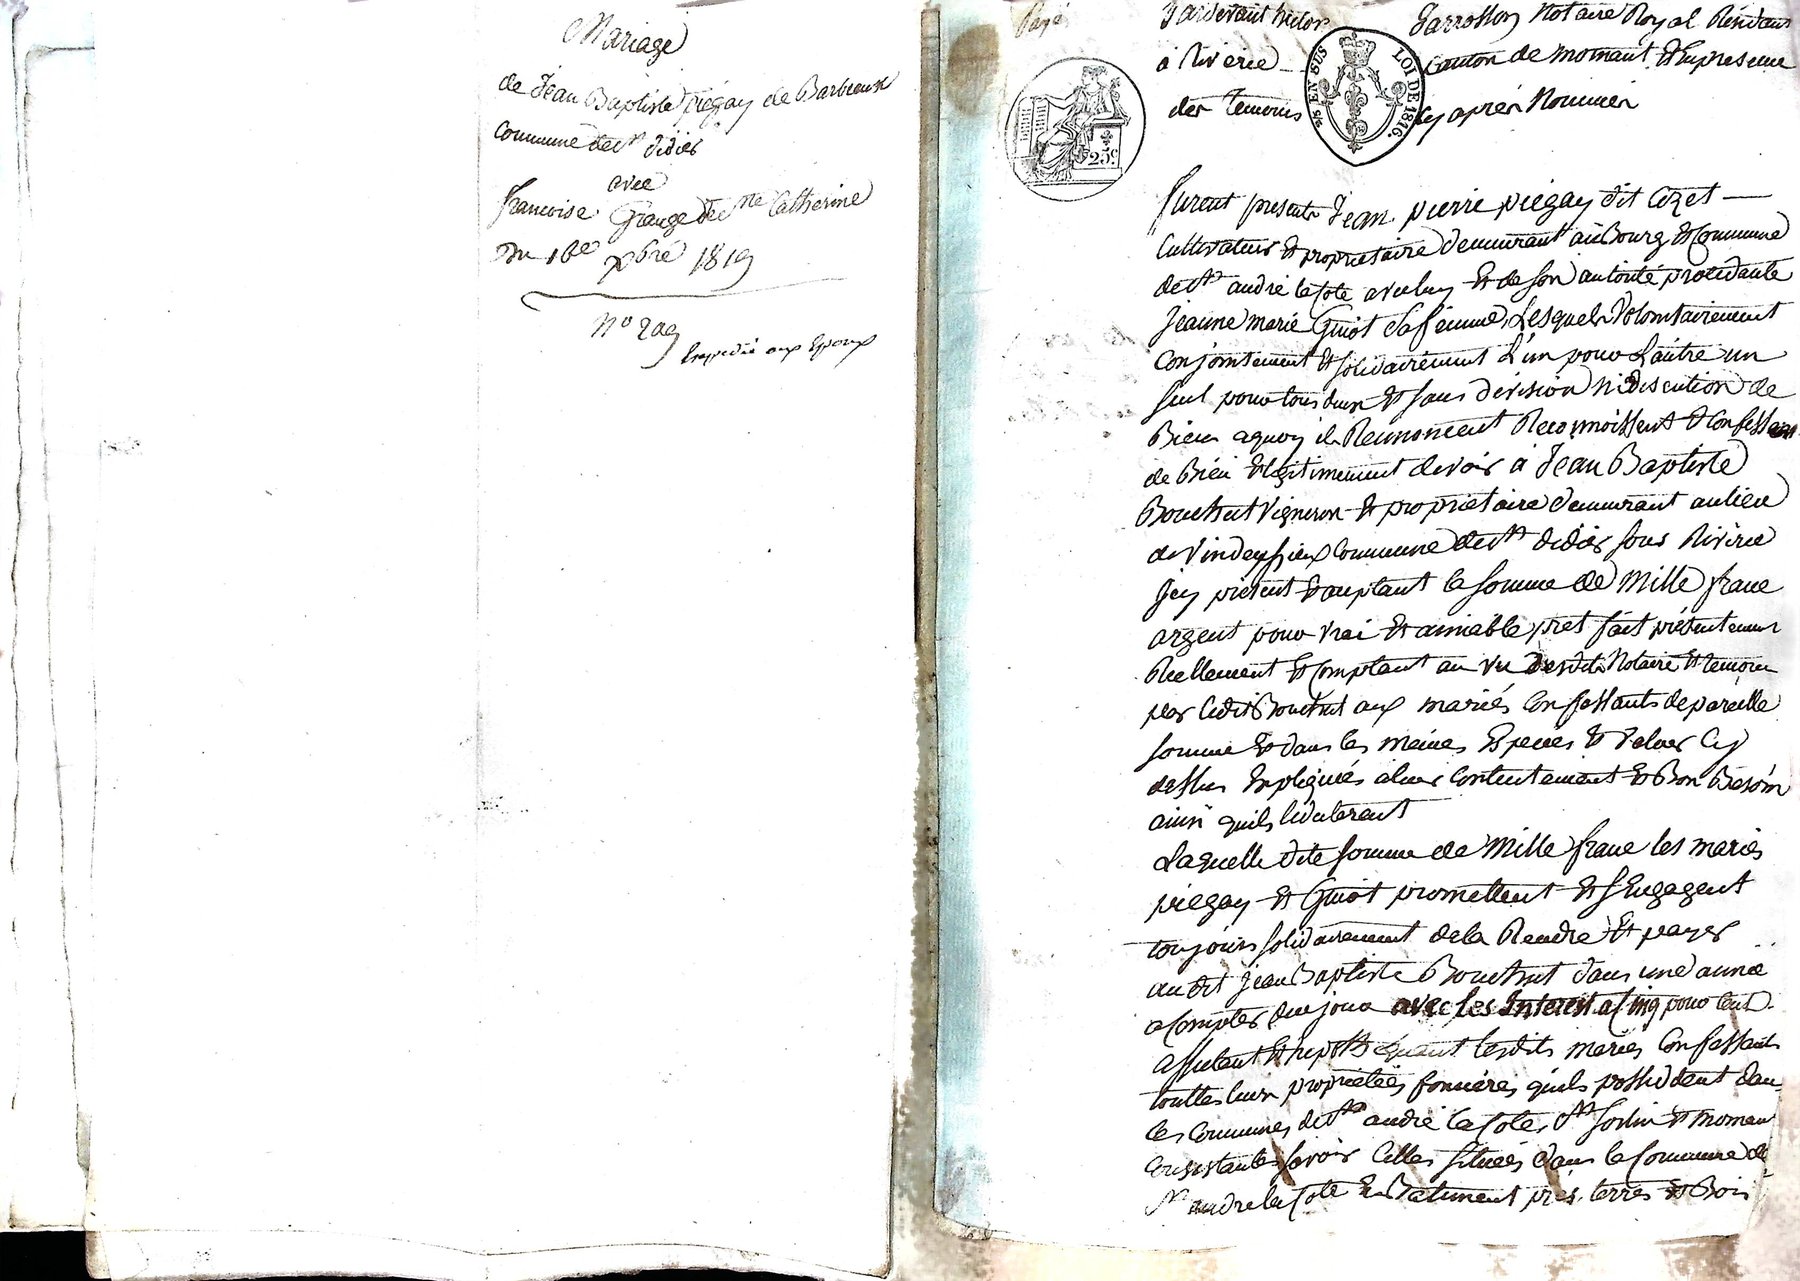 Mariage
de Jean Baptiste piégay de Barbieux
commune de st didier
avec
francoise Grange de ste Catherine
Du 16e xbre 1819
No 209
Expedié aux Epoux
Payé
Pardevant Garrossoy Notaire Royal Résidant
à Riverie canton de mornant Et En presence
des temoins cy après Nommés
25c.
EN SUS
LOI DE 1816.
furent présents Jean pierre piégay dit Cizet
Cultivateur Et proprietaire demeurant au Bourg Et Commune
de st andré la Cote avec luy Et de son autorité procedante
Jeanne marie Guiot sa femme, Lesquels Volontairement
Conjointement Et solidairement L'un pour L'autre un
seul pour tous deux Et sans division Ni discution de
Biens aquoy ils Renoncent Reconnoissent Et Confessent
de Bien Et légitimement devoir à Jean Baptiste
Bouchut Vigneron Et proprietaire demeurant au lieu
de Vindeyssieux Commune de st didier sous Riverie
Jcy présent Et aceptant la somme de Mille franc
argent pour vrai Et amiable prêt fait présentement
Réellement Et Comptant au vu desdits Notaire Et temoins
par ledit Bouchut aux mariés Confessants de pareille
somme Et dans les memes Especes Et Valeur Cy
dessus Expliqués a leur Contentement Et Bon Besoin
ainsi quils lédéclarent
Laquelle dite somme de Mille franc les mariés
piégay Et Guiot promettent Et s'Engagent
toujours solidairement de la Rendre Et payer
au dit Jean Baptiste Bouchut dans une année
a Compter du jour avec les Interest a Cinq pour Cent
lesdits mariés Confessants
touttes leurs propriétées foncières quils possèdent dans
les Communes de st andré la Cote, st Sorlin Et mornant
Consistantes savoir Celles situées dans la Commune de
st andré la Cote En Batiment prés, terres Et Bois